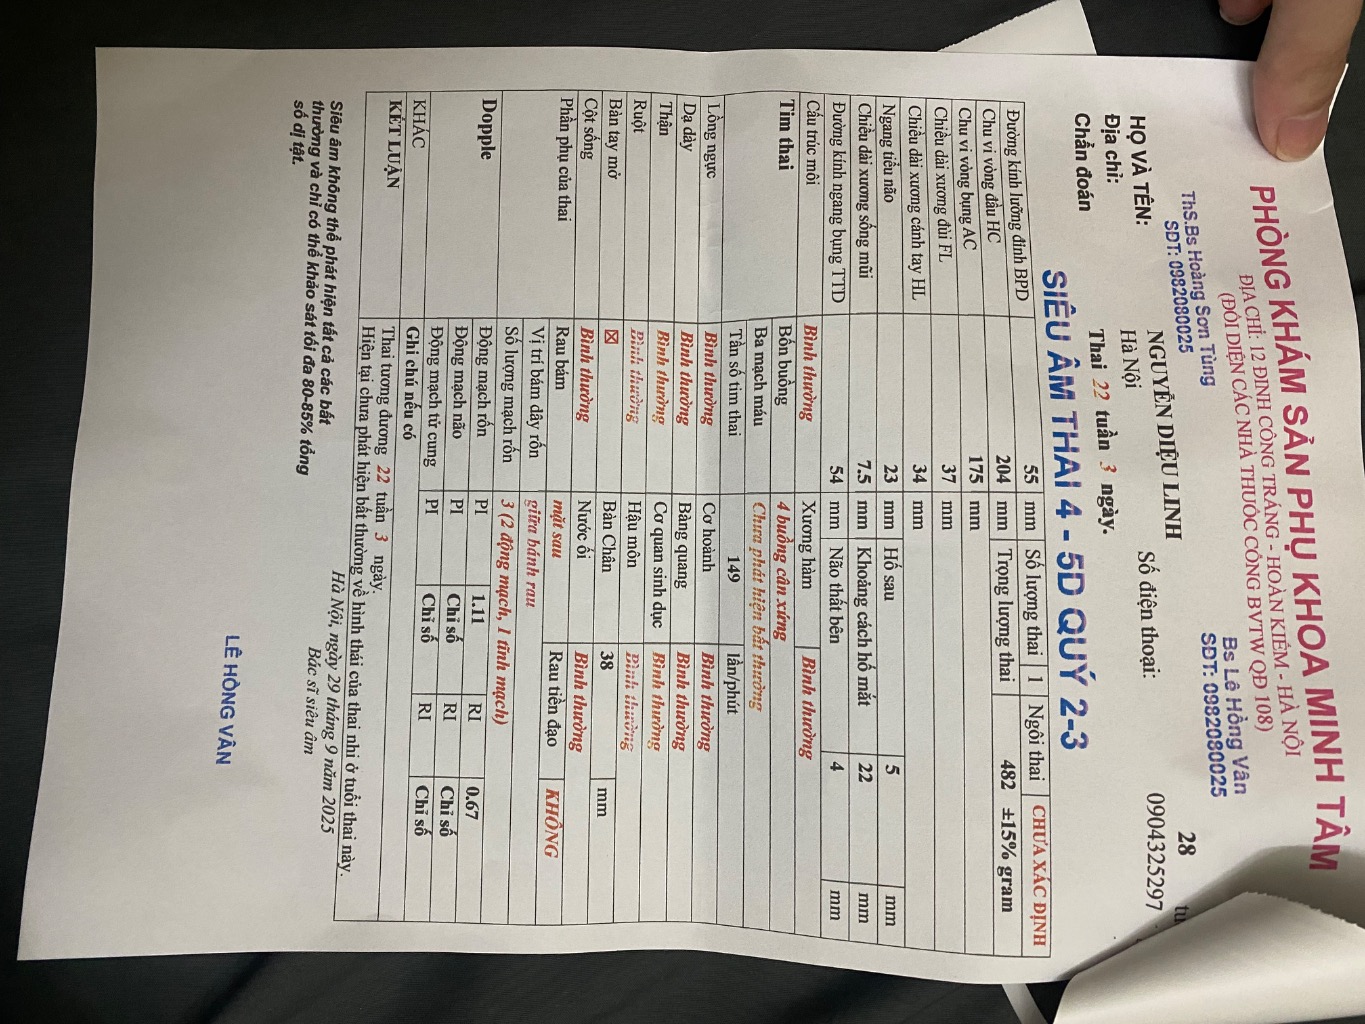 PHÒNG KHÁM SẢN PHỤ KHOA MINH TÂM
ĐỊA CHỈ: 12 ĐINH CÔNG TRÁNG - HOÀN KIẾM - HÀ NỘI
(ĐỐI DIỆN CÁC NHÀ THUỐC CỔNG BVTW QĐ 108)
ThS.Bs Hoàng Sơn Tùng Bs Lê Hồng Vân
SDT: 0982080025 SDT: 0982080025
HỌ VÀ TÊN: NGUYỄN DIỆU LINH 28
Địa chỉ: Hà Nội Số điện thoại: 0904325297
Chẩn đoán Thai 22 tuần 3 ngày.
SIÊU ÂM THAI 4 - 5D QUÝ 2-3
Đường kính lưỡng đỉnh BPD 55 mm Số lượng thai 1 Ngôi thai CHƯA XÁC ĐỊNH
Chu vi vòng đầu HC 204 mm Trọng lượng thai 482 ±15% gram
Chu vi vòng bụng AC 175 mm
Chiều dài xương đùi FL 37 mm
Chiều dài xương cánh tay HL 34 mm
Ngang tiểu não 23 mm Hố sau 5 mm
Chiều dài xương sống mũi 7.5 mm Khoảng cách hố mắt 22 mm
Đường kính ngang bụng TTD 54 mm Não thất bên 4 mm
Cấu trúc môi Bình thường Xương hàm Bình thường
Tim thai Bốn buồng 4 buồng cân xứng
Ba mạch máu Chưa phát hiện bất thường
Tần số tim thai 149 lần/phút
Lồng ngực Bình thường Cơ hoành Bình thường
Dạ dày Bình thường Bàng quang Bình thường
Thận Bình thường Cơ quan sinh dục Bình thường
Ruột Bình thường Hậu môn Bình thường
Bàn tay mở ☒ Bàn Chân 38 mm
Cột sống Bình thường Nước ối Bình thường
Phần phụ của thai Rau bám mặt sau Rau tiền đạo KHÔNG
Vị trí bám dây rốn giữa bánh rau
Số lượng mạch rốn 3 (2 động mạch, 1 tĩnh mạch)
Dopple Động mạch rốn PI 1.11 RI 0.67
Động mạch não PI Chỉ số RI Chỉ số
Động mạch tử cung PI Chỉ số RI Chỉ số
KHÁC Ghi chú nếu có
KẾT LUẬN Thai tương đương 22 tuần 3 ngày.
Hiện tại chưa phát hiện bất thường về hình thái của thai nhi ở tuổi thai này.
Siêu âm không thể phát hiện tất cả các bất
thường và chỉ có thể khảo sát tối đa 80-85% tổng
số dị tật.
Hà Nội, ngày 29 tháng 9 năm 2025
Bác sĩ siêu âm
LÊ HỒNG VÂN